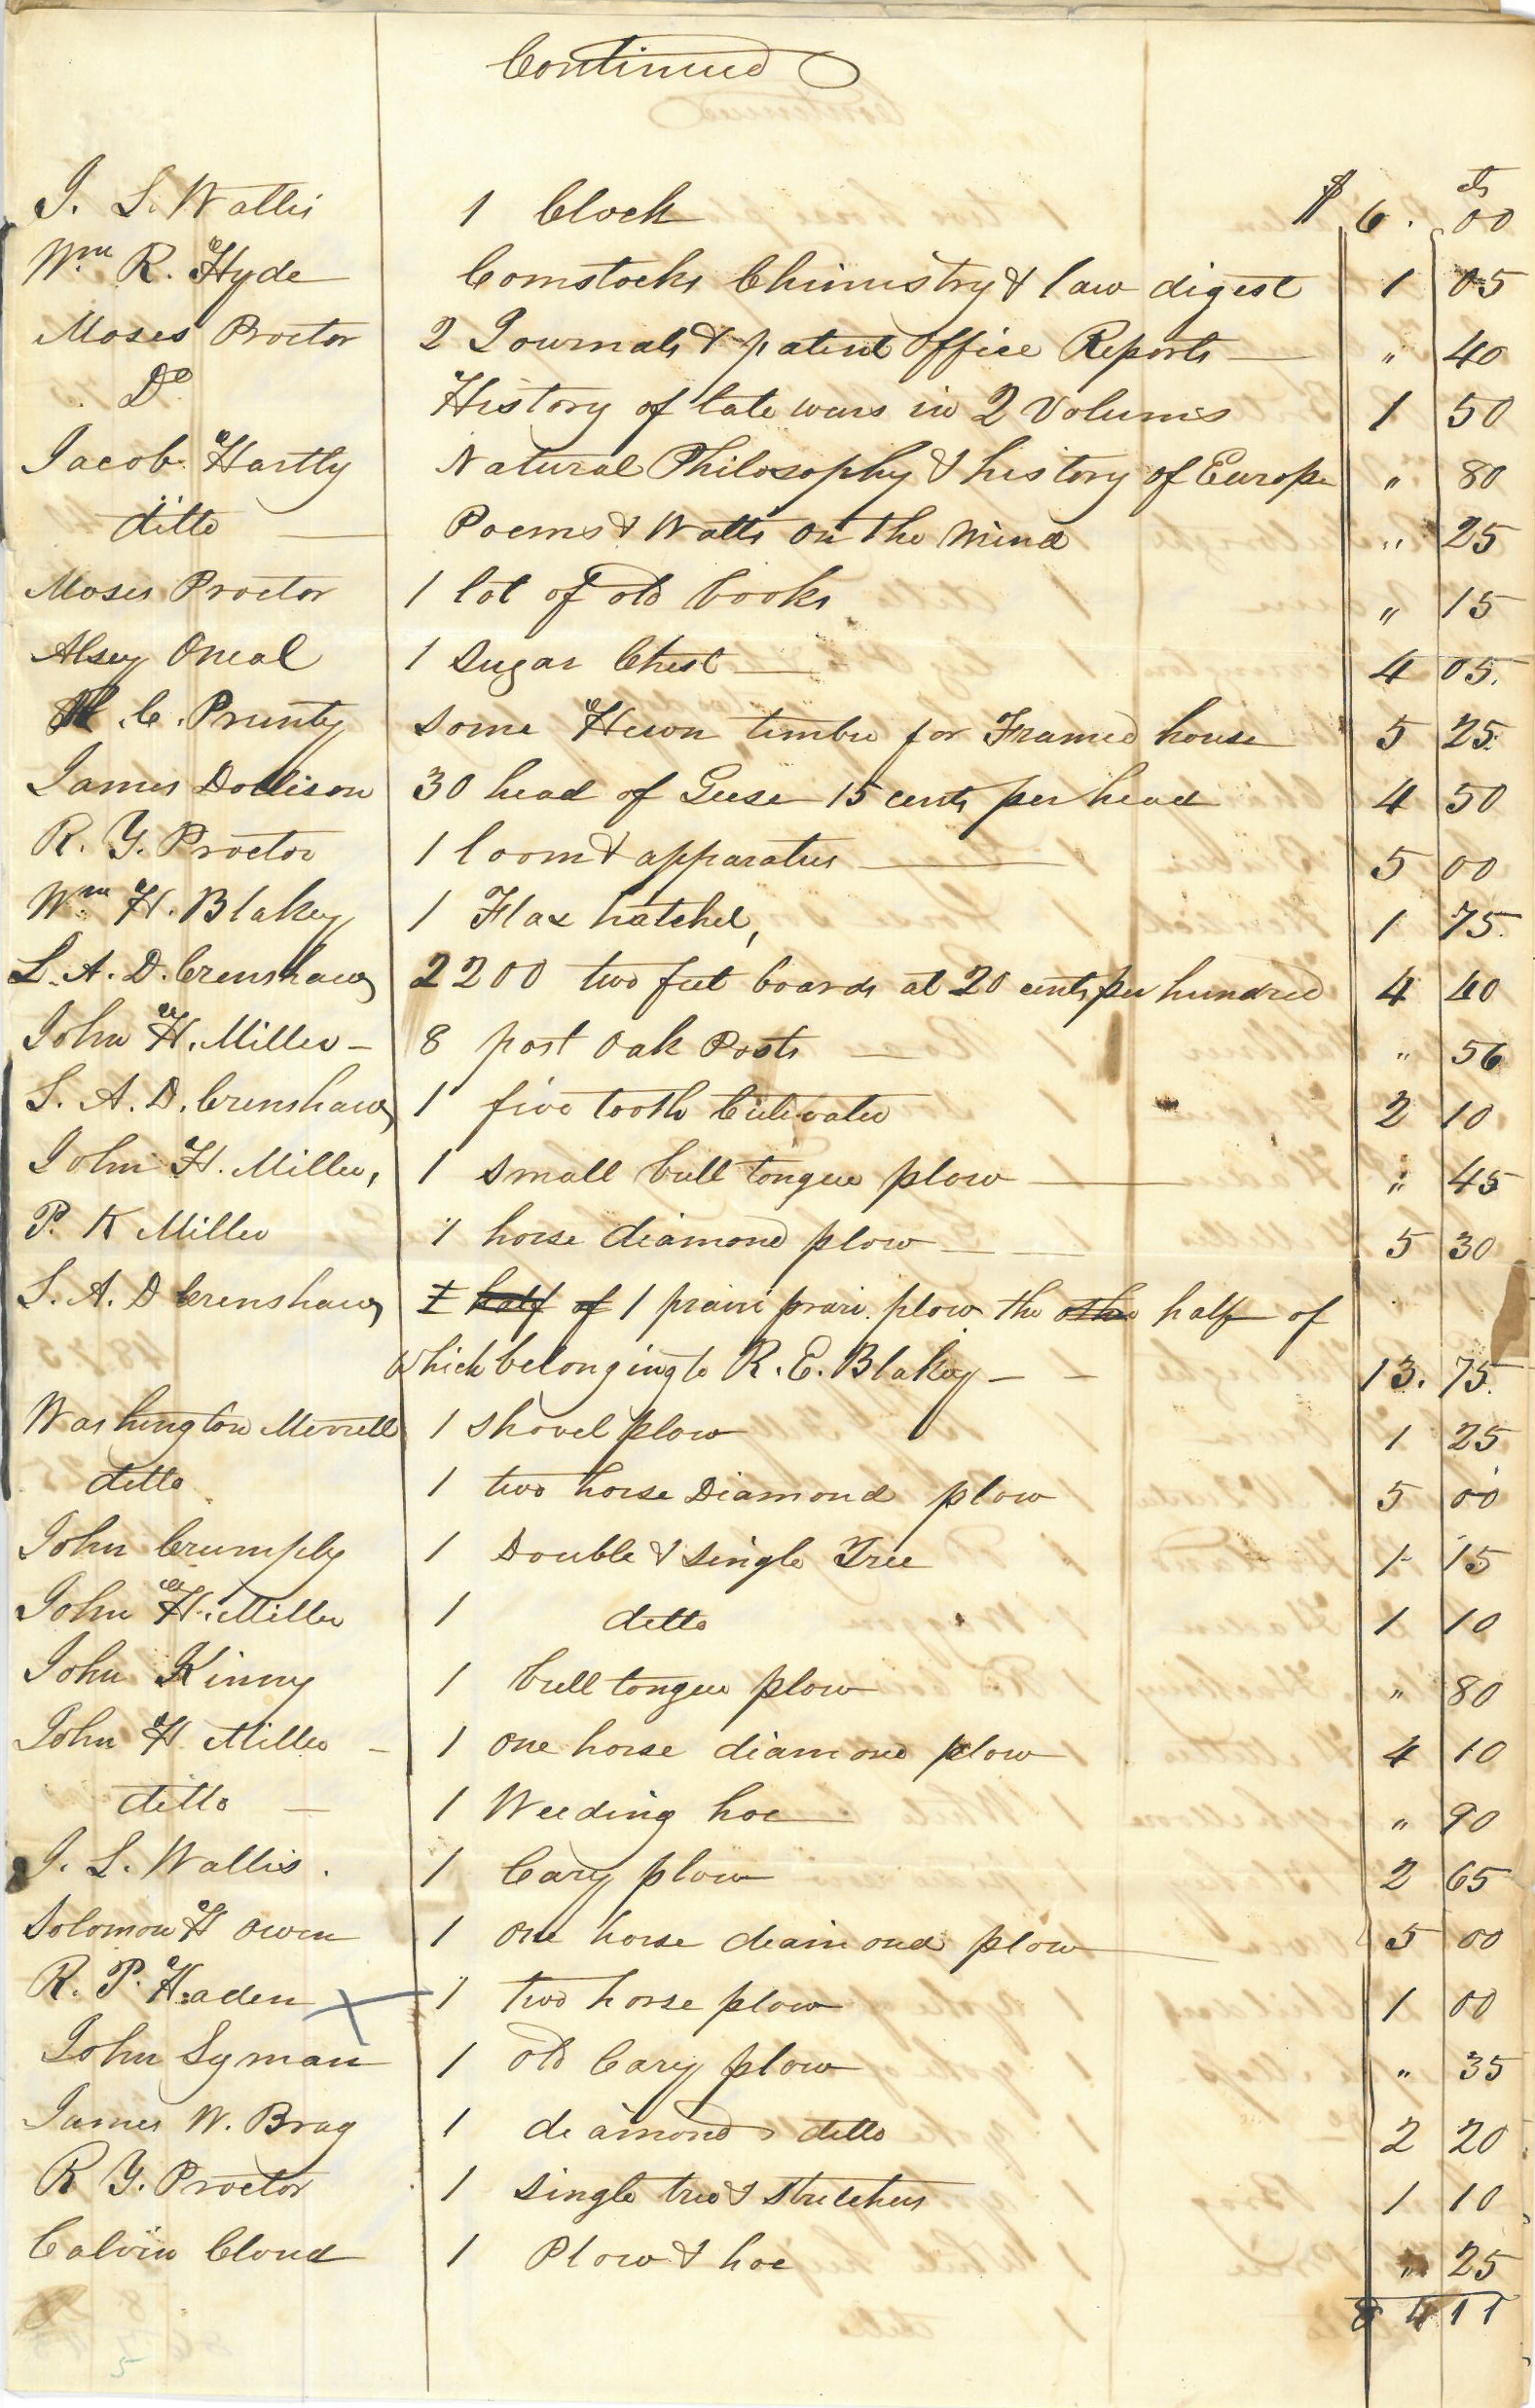 Continued
$ cts
J. L. Wallis 1 Clock 6. 00
Wm R. Hyde Comstocks Chimistry & law digest 1 05
Moses Proctor 2 Journals & patent office Reports — " 40
Do History of late wars in 2 Volums 1 50
Jacob Hartly Natural Philosophy & history of Europe " 80
ditto — Poems & Watts on the Mind " 25
Moses Proctor 1 lot of old books " 15
Alsey Oneal 1 Sugar Chest — 4 05.
C. Prunty some Hewn timber for Framed house 5 25
James Dollison 30 head of Geese 15 cents per head 4 50
R. Y. Proctor 1 loom & apparatus — 5 00
Wm H. Blakey 1 Flax hatchel, 1 75.
L. A. D. Crenshaw 2200 two feet boards at 20 cents per hundred 4 40
John H. Miller — 8 post oak Posts — " 56
L. A. D. Crenshaw 1 five tooth Cultivator 2 10
John H. Miller, 1 small bull tongue plow — " 45
P. K Miller 1 horse diamond plow — — 5 30
L. A. D Crenshaw 1 half of 1 prairi prari plow the other half of
which belonging to R. E. Blakey — — 13. 75.
Washington Merrell 1 shovel plow 1 25
ditto 1 two horse Diamond plow 5 00
John Crumply 1 Double & single Tree 1 15
John H. Miller 1 ditto 1 10
John Kinny 1 bull tongue plow " 80
John H Miller — 1 one horse diamond plow 4 10
ditto — 1 Weeding hoe " 90
J. L. Wallis. 1 Cary plow 2 65
Solomon H Owen 1 one horse deaimond plow 5 00
R. P. Haden X 1 two horse plow 1 00
John Syman 1 old Cary plow " 35
James W. Brag 1 deamond ditto 2 20
R Y. Proctor 1 single tree & stretchers 1 10
Calvin Cloud 1 Plow & hoe " 25
8 4 11
5